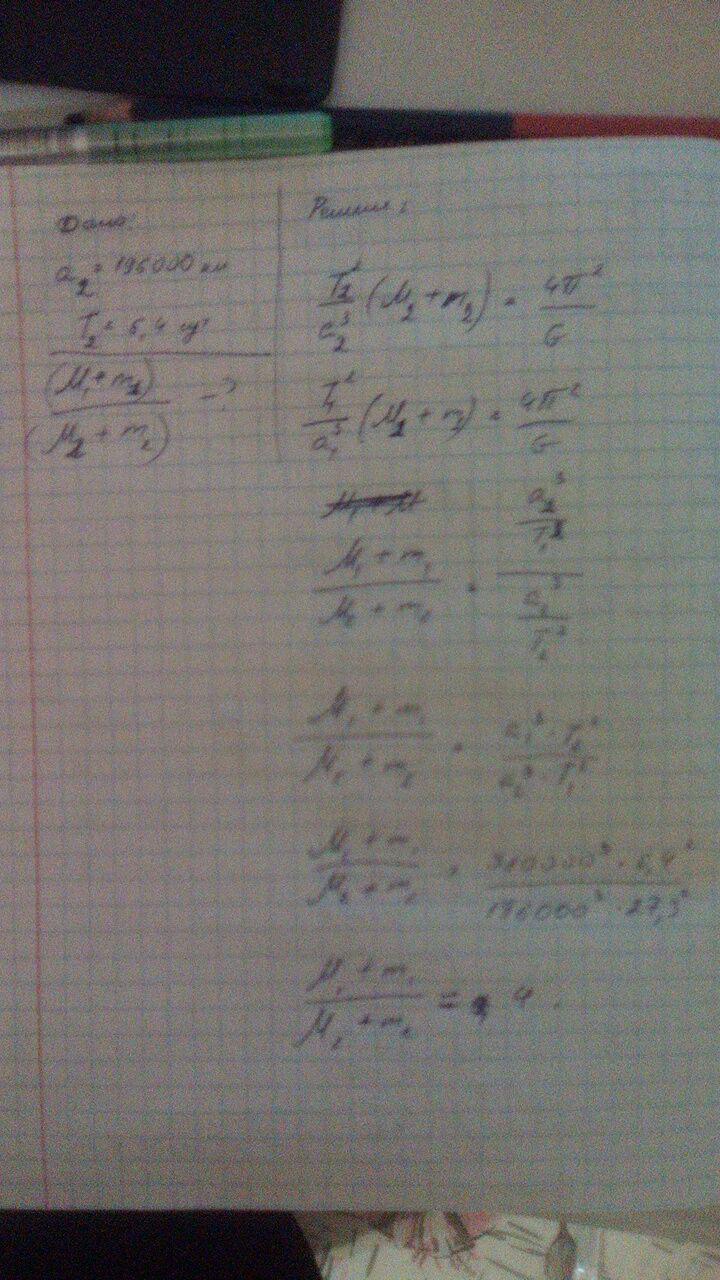 Дано:
a₂ = 196000 км
T₂ = 6,4 сут
(M₁ + m₁)
(M₂ + m₂) - ?
Решение:
T₂²/a₂³ (M₂ + m₂) = 4π²/G
T₁²/a₁³ (M₁ + m₁) = 4π²/G
M₁ + m₁ / M₂ + m₂ = a₁³/T₁² / a₂³/T₂²
M₁ + m₁ / M₂ + m₂ = a₁³ · T₂² / a₂³ · T₁²
M₁ + m₁ / M₂ + m₂ = 380000³ · 6,4² / 196000³ · 27,3²
M₁ + m₁ / M₂ + m₂ = 4